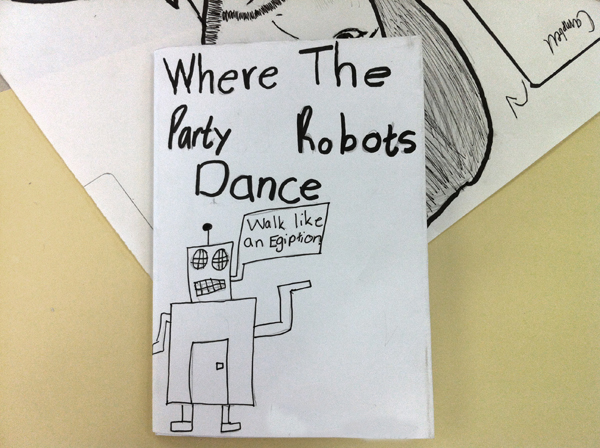 Where The
Party Robots
Dance
Walk like
an Egiption
Campbell